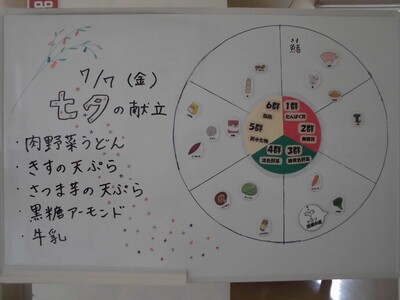 7/7(金)
七夕の献立
・肉野菜うどん
・きすの天ぷら
・さつま芋の天ぷら
・黒糖アーモンド
・牛乳
6群
1群
たんぱく質
5群
2群
4群
3群